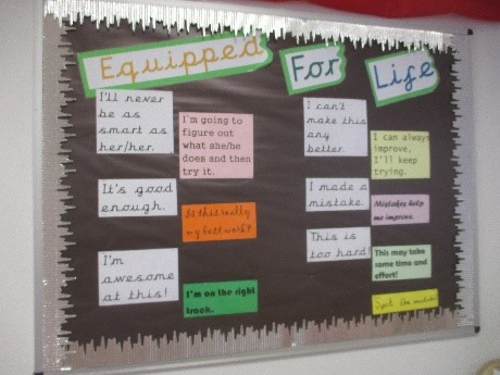 Equipped For Life
I'll never
be as
smart as
her/her.
I'm going to
figure out
what she/he
does and then
try it.
It's good
enough.
Is this really
my best work?
I'm
awesome
at this!
I'm on the right
track.
I can't
make this
any
better.
I can always
improve,
I'll keep
trying.
I made a
mistake.
Mistakes help
me improve.
This is
too hard!
This may take
some time and
effort!